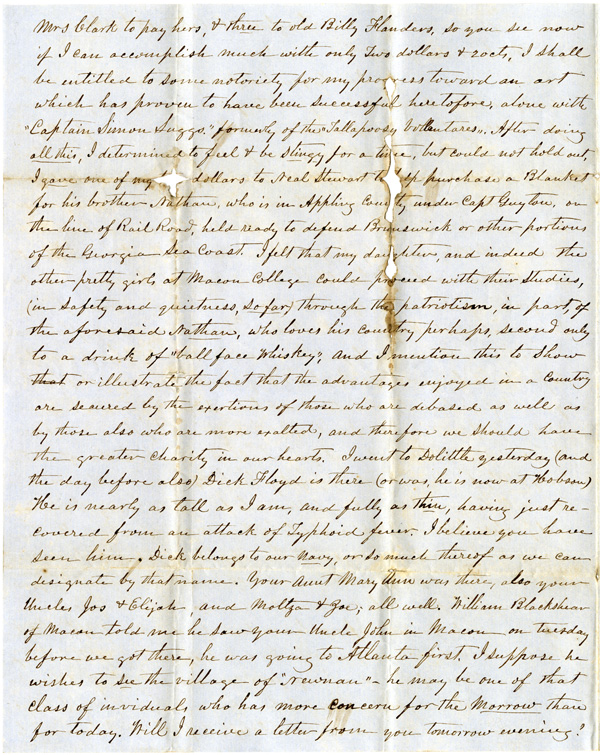 Mrs Clark to pay hers, & three to old Billy Flanders, so you see now
if I can accomplish much with only Two dollars & 20cts, I shall
be entitled to some notoriety for my progress toward an art
which has proven to have been successful heretofore, alone with
"Captain Simon Suggs." formerly of the "Tallapoosy Vollantares". After doing
all this, I determined to feel & be stingy for a time, but could not hold out,
I gave one of my dollars to Neal Stewart to help purchase a Blanket
for his brother Nathan, who is in Appling County under Capt Guyton, on
the line of Rail Road, held ready to defend Brunswick or other portions
of the Georgia Sea Coast. I felt that my daughters, and indeed the
other pretty girls at Macon College could proceed with their studies,
(in safety and quietness, so far) through the patriotism, in part, of
the aforesaid Nathan, who loves his country perhaps, second only
to a drink of "ball face Whiskey", And I mention this to show
that or illustrate the fact that the advantages enjoyed in a Country
are secured by the exertions of those who are debased as well as
by those also who are more exalted, and therefore we should have
the greater charity in our hearts. I went to Dolittle yesterday (and
the day before also) Dick Floyd is there (or was, he is now at Hobson)
He is nearly as tall as I am, and fully as thin, having just re-
covered from an attack of Typhoid fever. I believe you have
seen him. Dick belongs to our navy, or so much thereof as we can
designate by that name. Your Aunt Mary Ann was there, also your
Uncles Jos & Elijah, and Moltza & Zoe; all well. William Blackshear
of Macon told me he saw your Uncle John in Macon on tuesday
before we got there, he was going to Atlanta first. I suppose he
wishes to see the village of "Newnan" – he may be one of that
class of inviduals who has more concern for the Morrow than
for today. Will I receive a letter from you tomorrow evening?